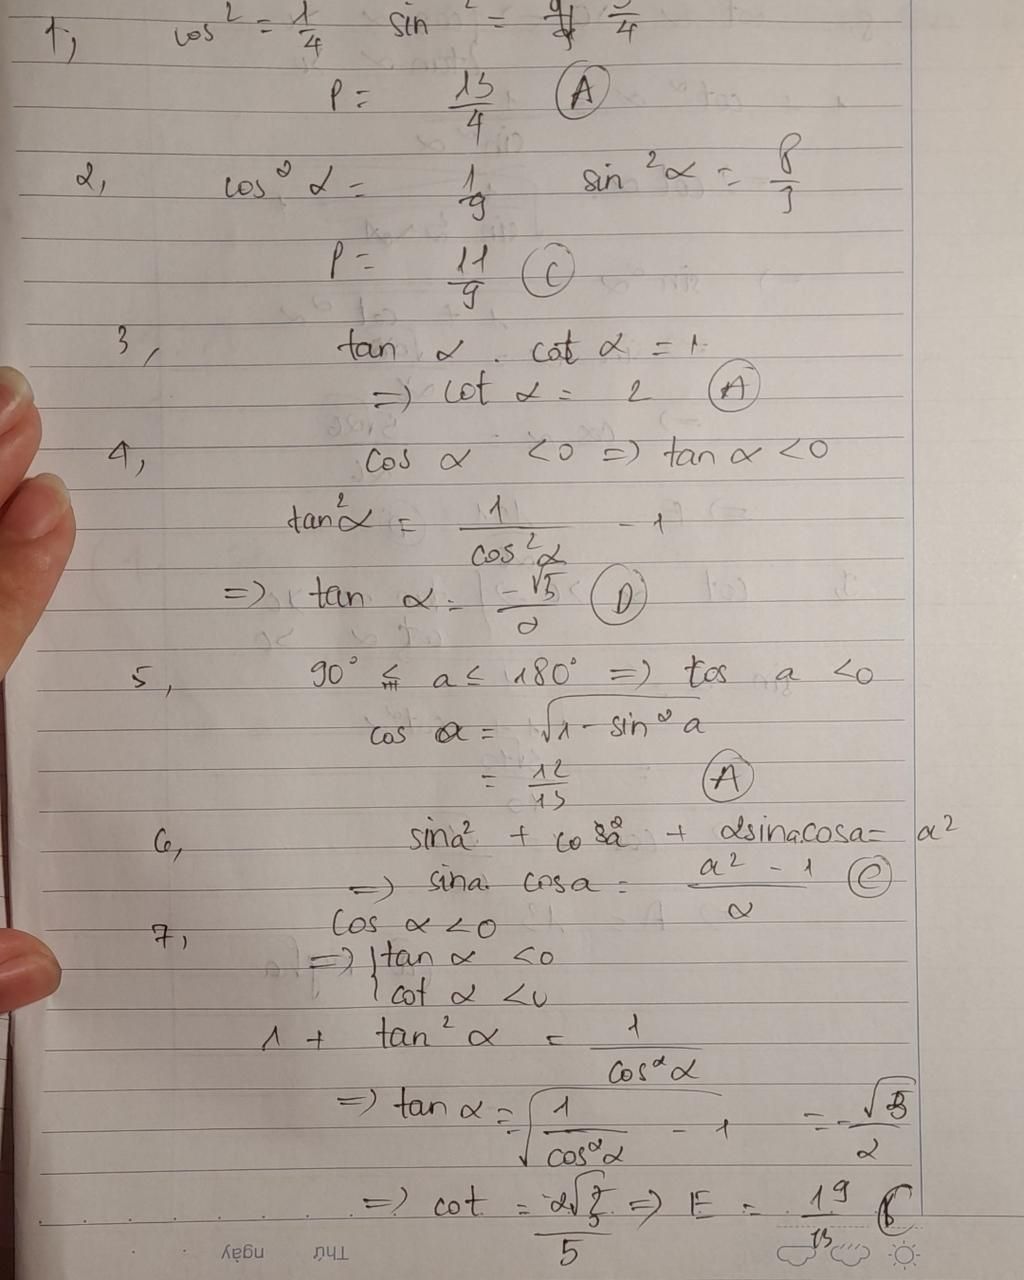 1, cos² = 1/4 sin² = 3/4
P = 13/4 Ⓐ
2, cos² α = 1/9 sin² α = 8/9
P = 11/9 Ⓒ
3, tan α . cot α = 1
=> cot α = 2 Ⓐ
4, cos α <0 => tan α <0
tan²α = 1/cos²α - 1
=> tan α = -√5/2 Ⓓ
5, 90° ≤ a ≤ 180° => cos a <0
cos a = √(1 - sin² a)
= 12/13 Ⓐ
6, sina² + cosa² + 2sina.cosa = a²
=> sina. cosa = (a² - 1)/2 Ⓒ
7, cos α <0
=> { tan α <0
cot α <0
1 + tan² α = 1/cos²α
=> tan α = √(1/cos²α - 1) = -√5/2
=> cot = -2√5/5 => E = 19/13
Thứ ngày